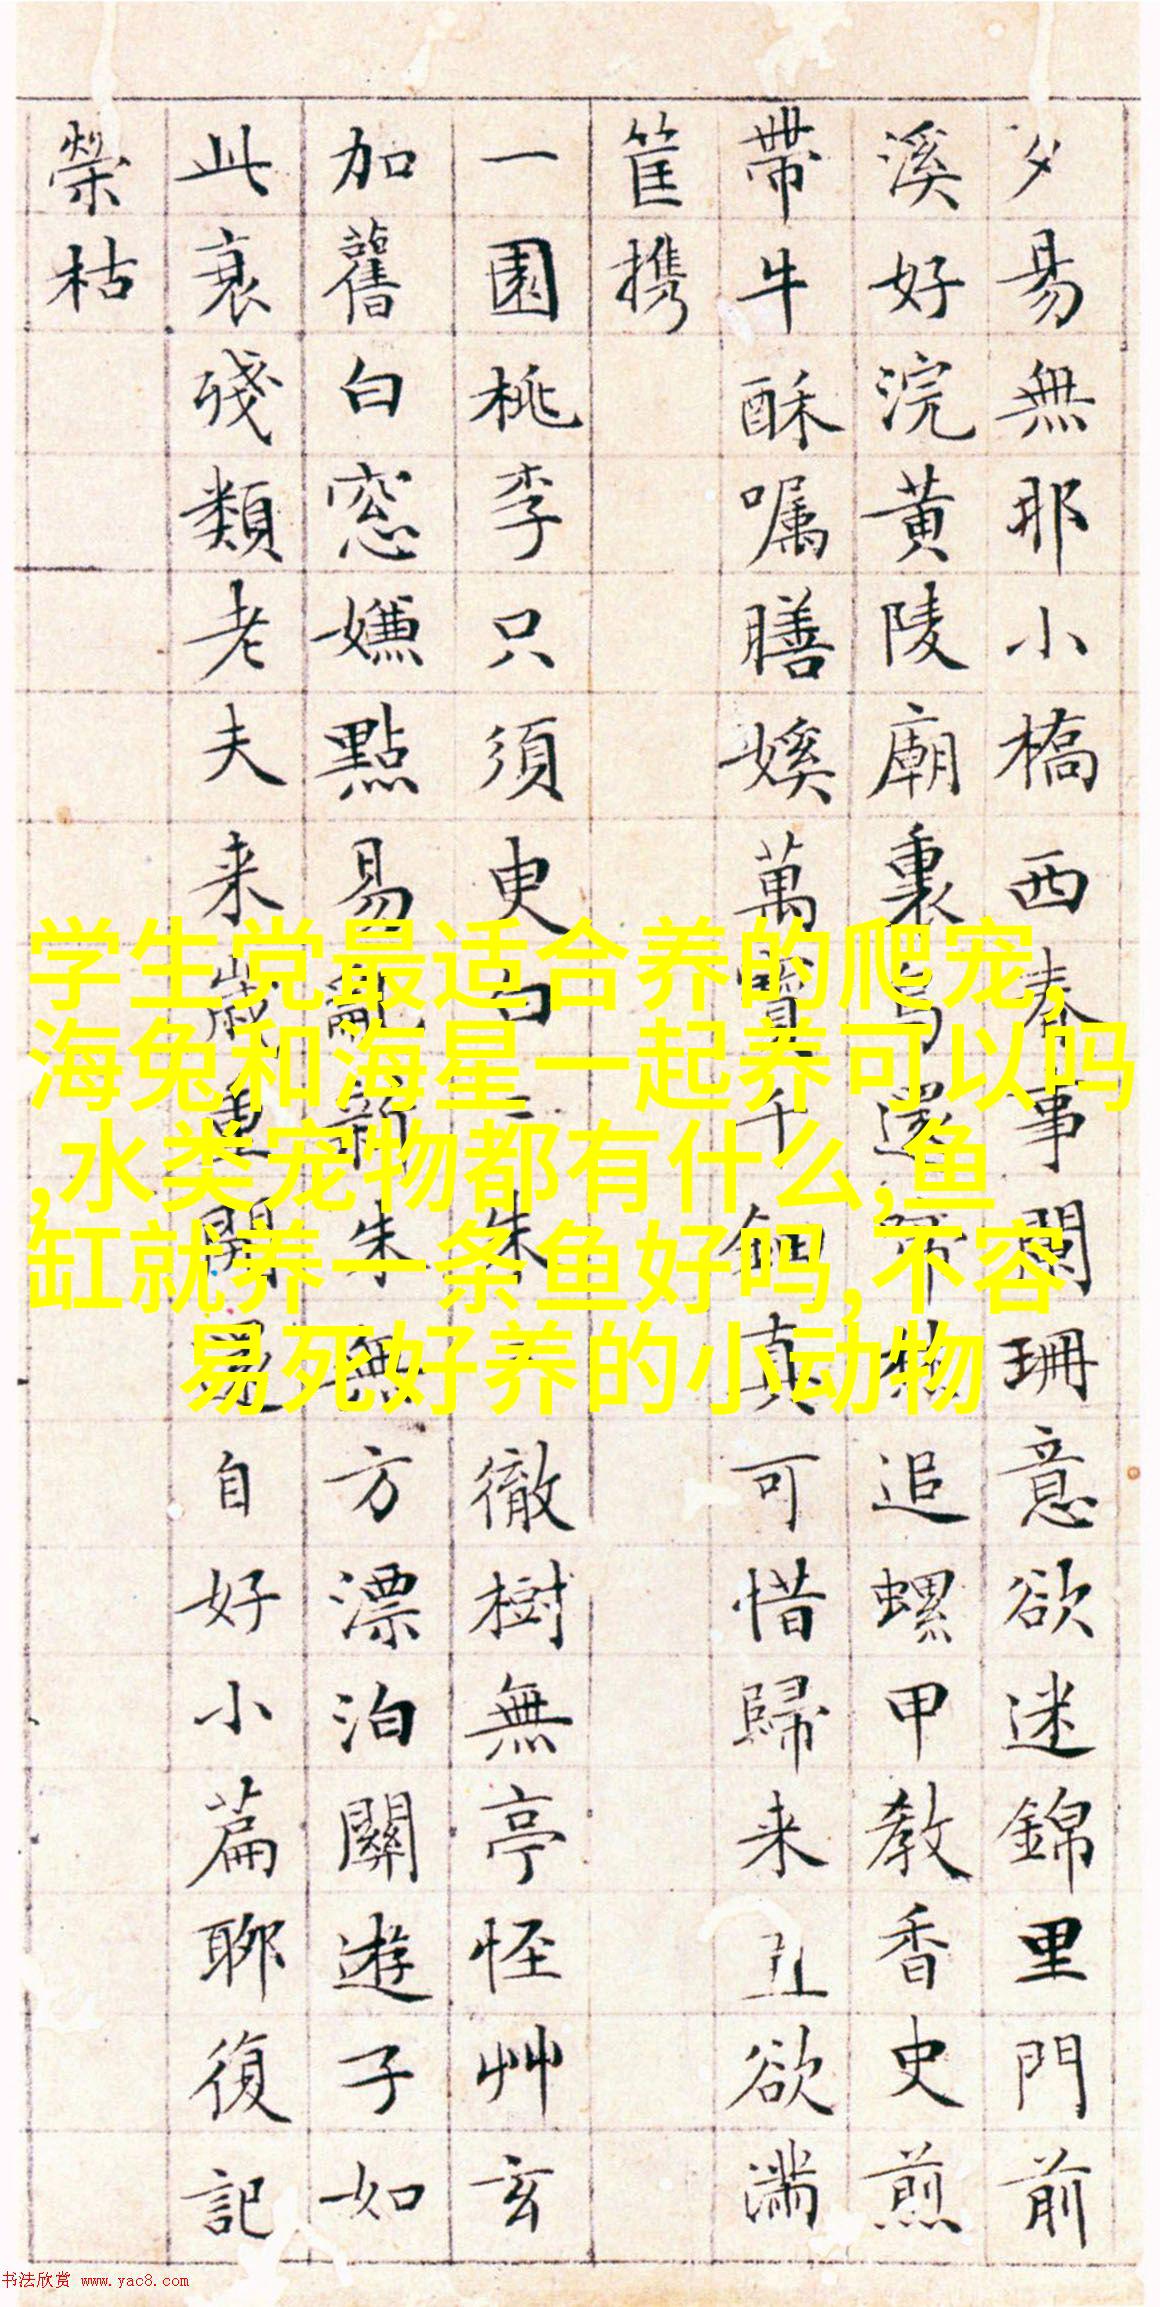 夕易無那小橋西春事闌珊意欲迷錦里門前
溪好浣黄陵廟裏還追螺甲教香史煎
帶牛酥嘱膳㜎萬寶千鈿真可惜歸来丑欲滿
筐携
一園桃李只須臾白朱徹樹無亭怪艸玄
加舊白窓嫌點易亂新朱無方漂泊關遊子如
此衰殘類老夫来歲重開還自好小篇聊復記
榮枯
学生党最适合养的爬宠,
海兔和海星一起养可以吗
,水类宠物都有什么,鱼
缸就养一条鱼好吗,不容
易死好养的小动物
书法欣赏 www.yac8.com